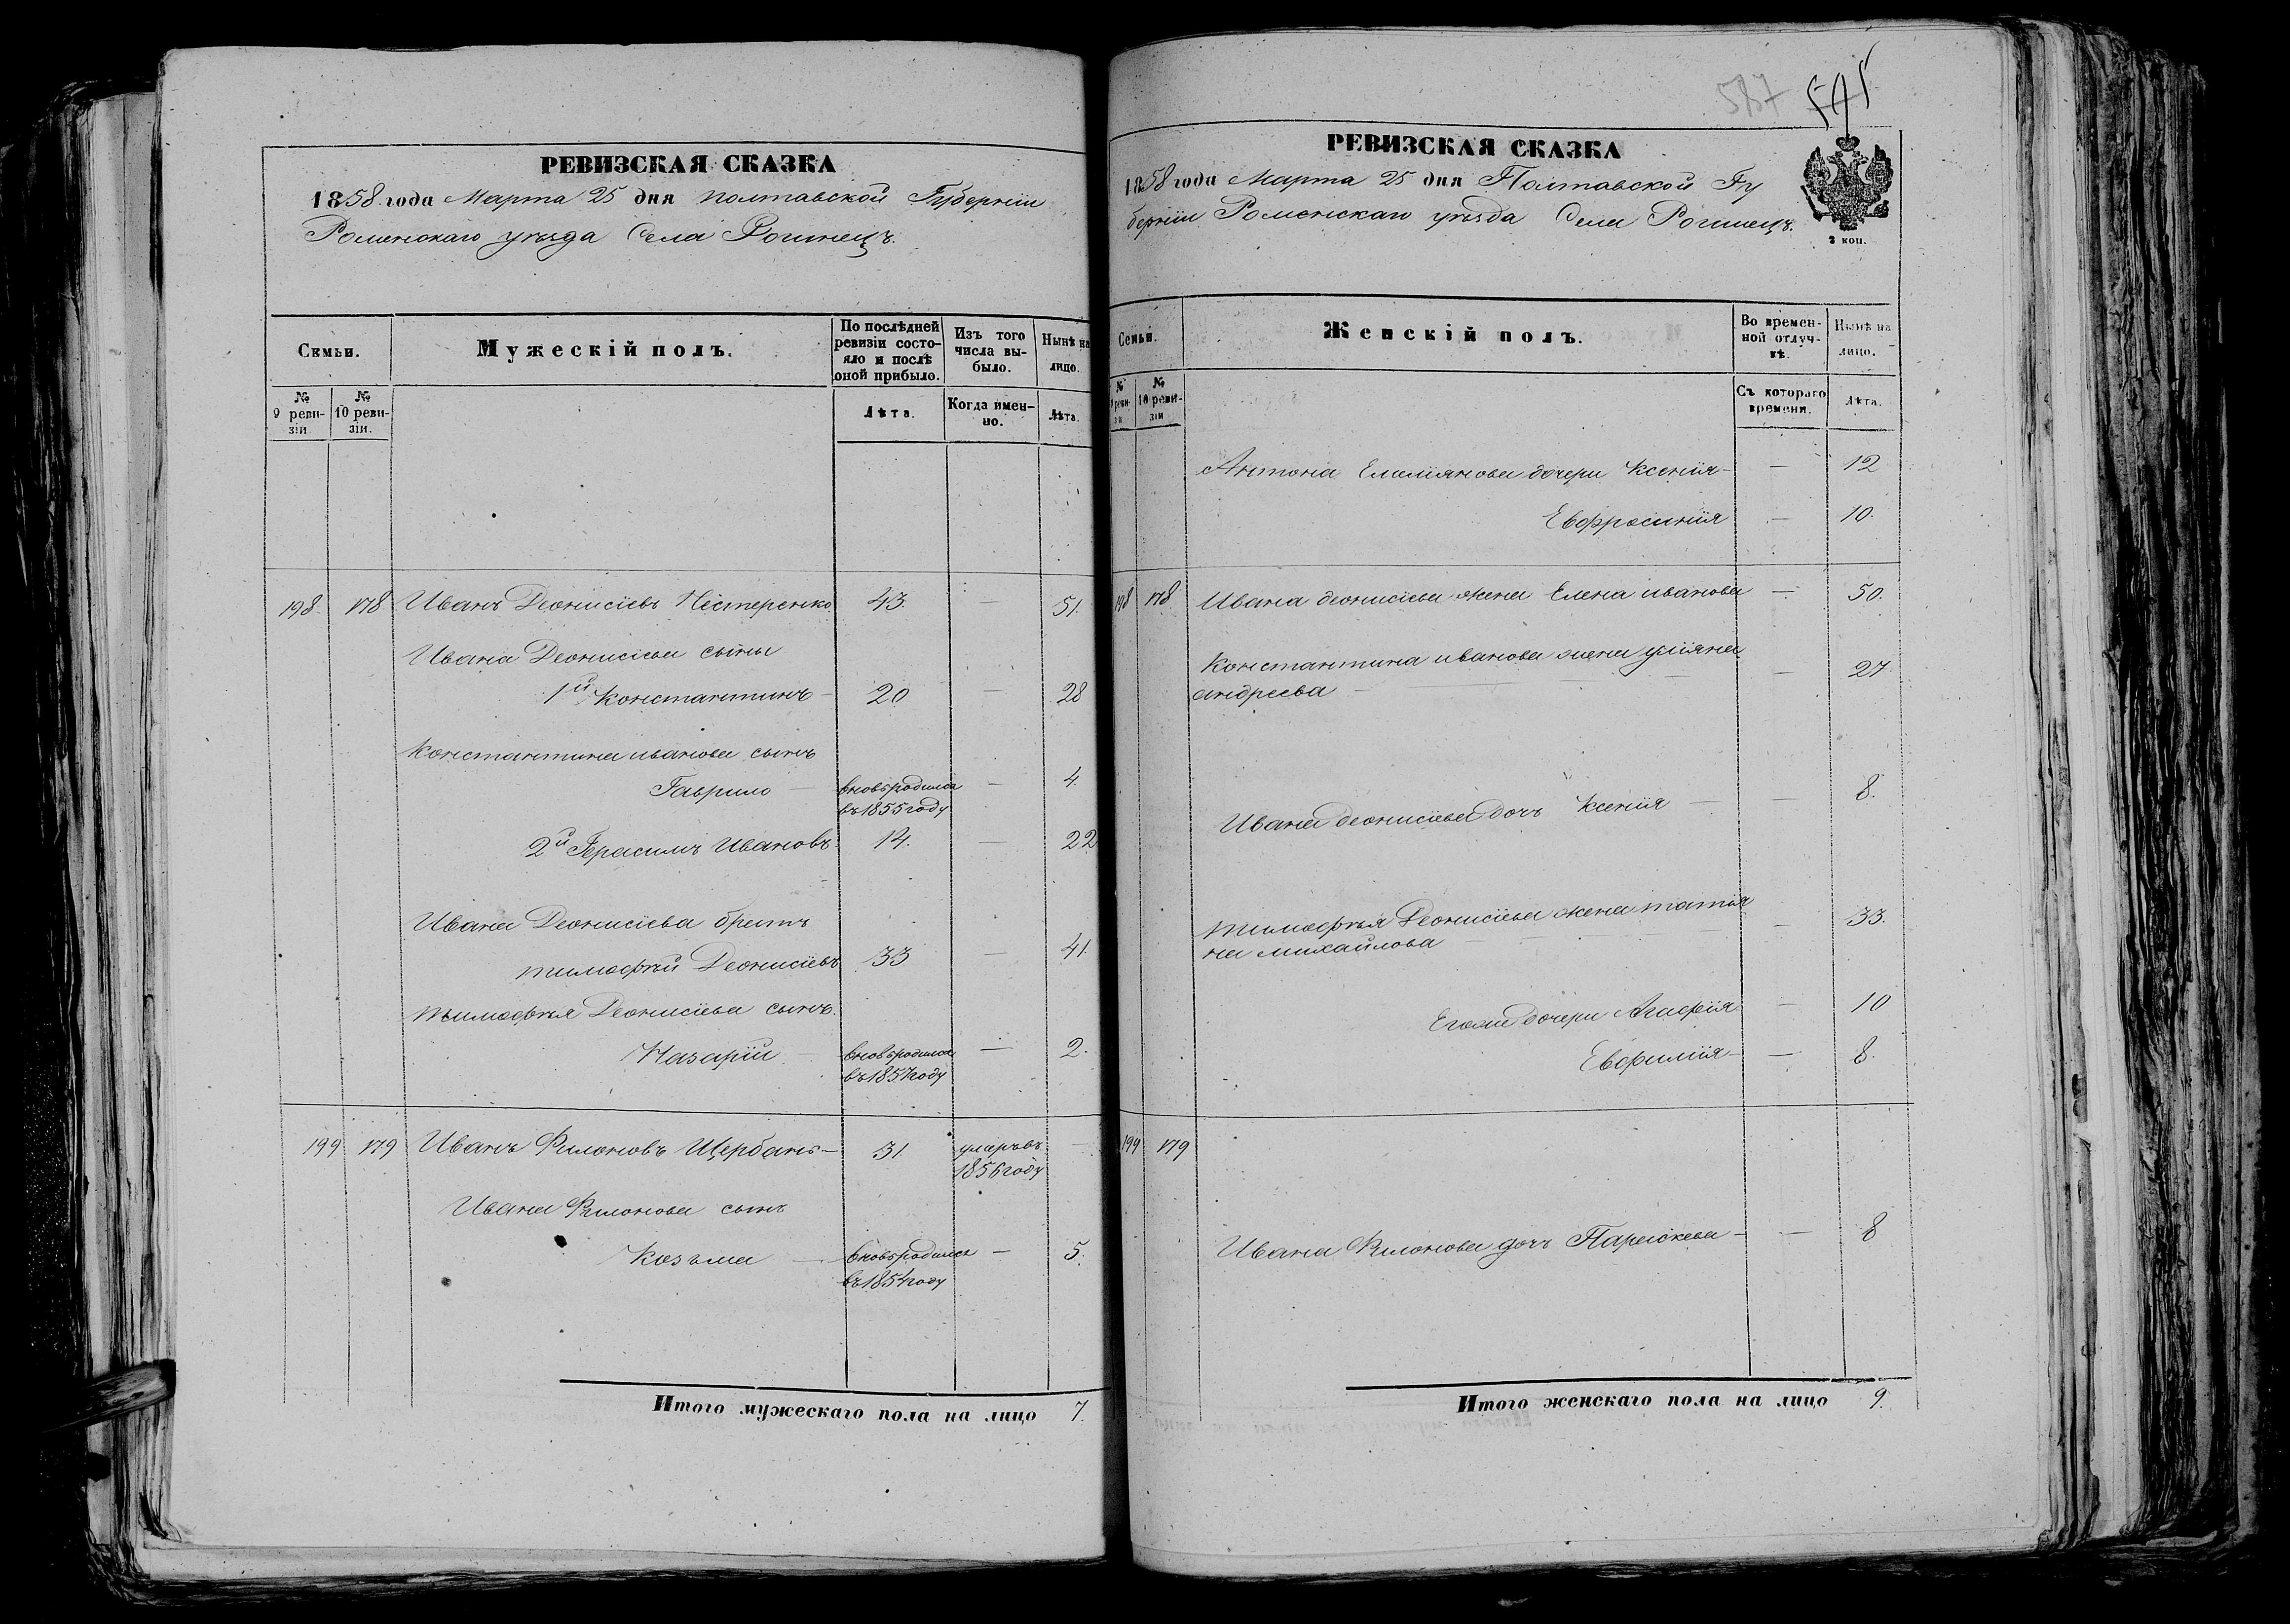 РЕВИЗСКАЯ СКАЗКА
1858 года Марта 25 дня Полтавской Губернiи
Роменскаго уѣзда Села Рогинецъ.
Семьи.
Мужескiй полъ.
По послѣдней ревизiи состояло и послѣ оной прибыло.
Изъ того числа выбыло.
Нынѣ на лицо.
№ 9 ревизiи
№ 10 ревизiи.
Лѣта.
Когда именно.
Лѣта.
198. 178 Иванъ Деонисiевъ Нестеренко 43. — 51.
Ивана Деонисiева сыны
1й Константинъ — 20 — 28
Константина иванова сынъ
Гаврило — вновьродился — 4.
въ 1855 году
2й Герасимъ Ивановъ 14. — 22
Ивана Деонисiева братъ
тимофѣй Деонисiевъ 33 — 41.
тимофѣя Деонисiева сынъ.
Назарiй — вновьродился — 2.
въ 1857 году
199 179 Иванъ Филоновъ Щербань — 31 умеръвъ —
1856 году
Ивана Филонова сынъ
Козьма — вновьродился — 5.
въ 1854 году
Итого мужескаго пола на лицо 7.
587
РЕВИЗСКАЯ СКАЗКА
1858 года Марта 25 дня Полтавской Гу
бернiи Роменскаго уѣзда Села Рогинецъ.
2 коп.
Семьи.
Женскiй полъ.
Во временной отлучкѣ.
Нынѣ на лицо.
№ 9 ревизiи
№ 10 ревизiи
Съ котораго времени.
Лѣта.
Антона Емелiянова дочери Ксенiя — — 12
Евфросинiя — 10.
198 178 Ивана деонисiева жена Елена иванова — 50.
Константина иванова жена улiяна
андреева — — 27
Ивана деонисiева дочь Ксенiя — — 8.
тимофѣя Деонисiева жена татья
на михайлова — — 33.
Егоже дочери Агафiя — 10
Евфимiя — — 8.
199 179
Ивана Филонова дочь Параскева — — 8
Итого женскаго пола на лицо 9.